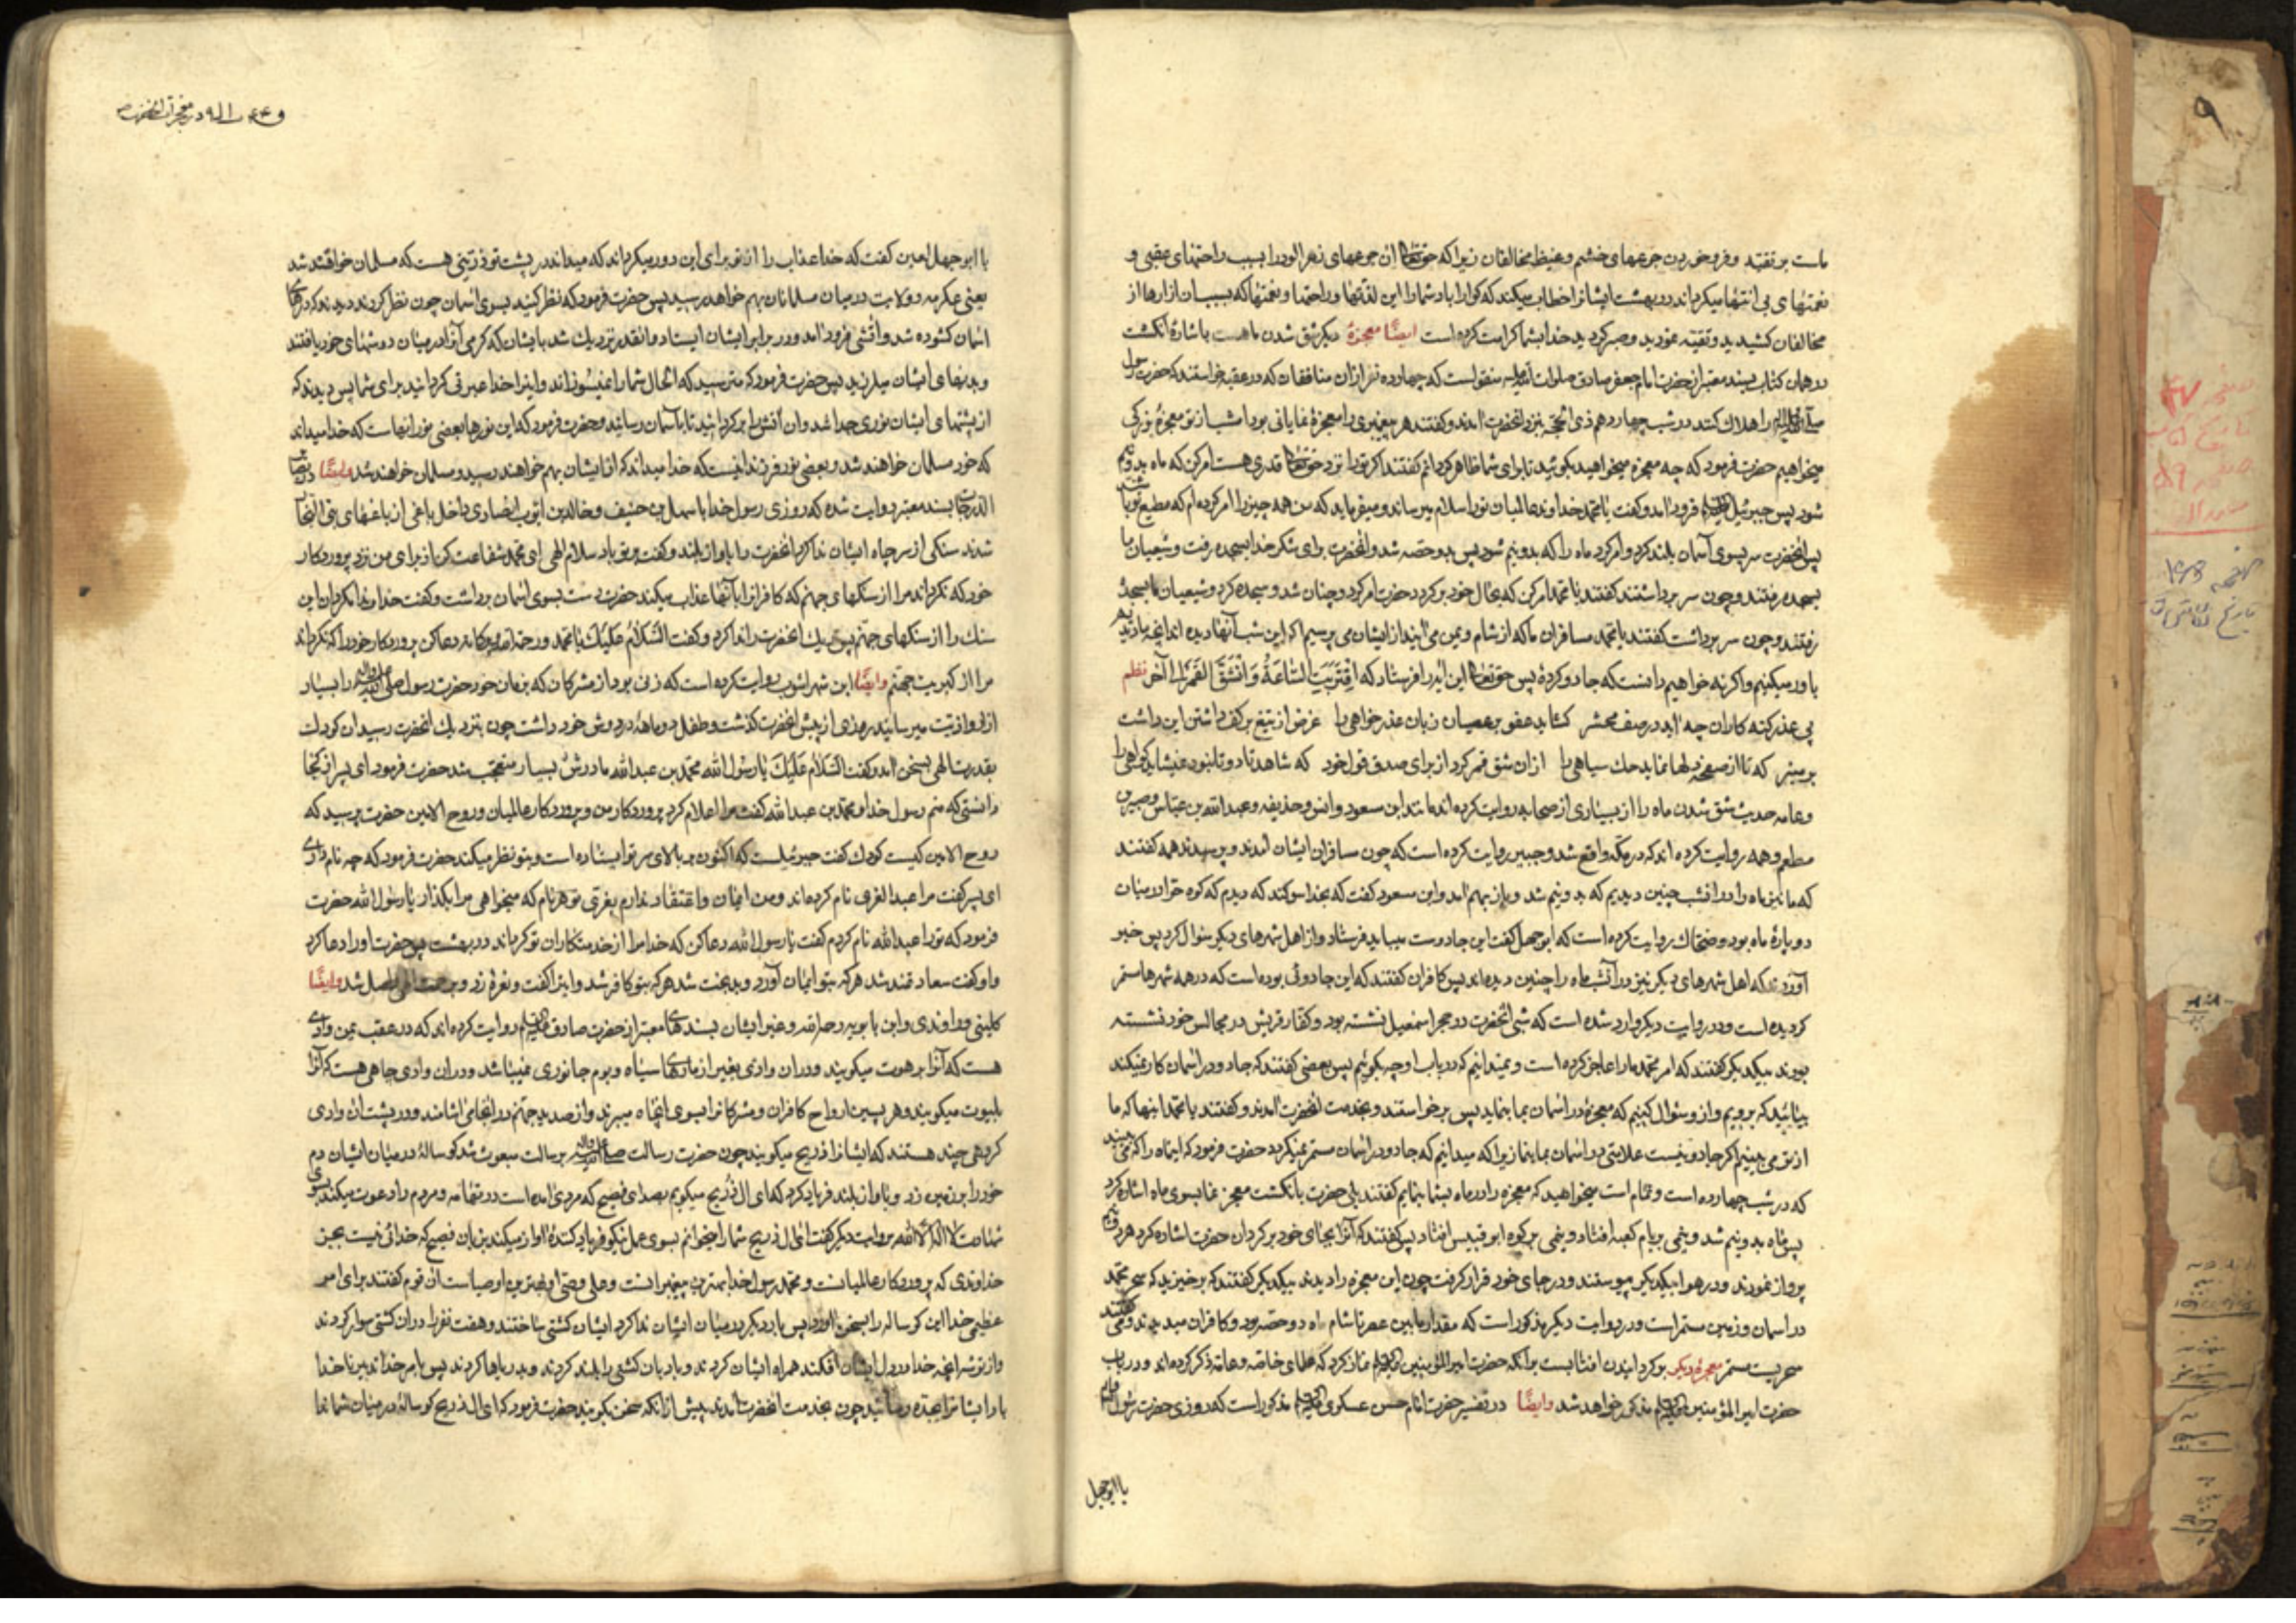 ماست بر تقیه و فرو خوردن جرعهای خشم و غیظ مخالفان زیرا که حقتعالی ان جرعهای زهرالود را بسبب راحتهای عقبی و
نعمتهای بی انتها میکرداند در بهشت ایشانرا خطاب میکند که کوارا باد شما را این لذتها و راحتها و نعمتها که بسبب ان ازارها از
مخالفان کشیدید و تقیه نمودید و صبر کردید خدا بشما کرامت کرده است ایضًا معجزهٔ دیکر شق شدن ماهست باشارهٔ انکشت
در همان کتاب بسند معتبر از حضرت امام جعفر صادق صلوات الله علیه منقولست که چهارده نفر ازان منافقان که در عقبه خواستند که حضرت رسول
را هلاک کنند در شب چهاردهم ذی الحجه بنزد انحضرت امدند و کفتند هر پیغمبری را معجزهٔ نمایانی بود امشب از تو معجزهٔ بزرکی
میخواهیم حضرت فرمود که چه معجزه میخواهید بکوئید تا برای شما ظاهر کردانم کفتند اکر ترا نزد حقتعالی قدری هست امر کن که ماه بدو نیم
شود پس جبرئیل فرود امد و کفت یا محمد خداوند عالمیان ترا سلام میرساند و میفرماید که من همه چیز را امر کرده ام که مطیع تو باشند
پس انحضرت سر بسوی آسمان بلند کرد و امر کرد ماه را که بدو نیم شود پس بدو حصه شد و انحضرت برای شکر خدا بسجده رفت و شیعیان ما
بسجده رفتند و چون سر برداشتند کفتند یا محمد امر کن که بحال خود برکردد حضرت امر کرد و چنان شد و سجده کرد و شیعیان ما بسجدهٔ
رفتند و چون سر برداشت کفتند یا محمد مسافران ما که از شام و یمن می ایند از ایشان می پرسیم اکر این شب آنها دیده اند انچه ما دیدیم
باور میکنیم و اکر نه خواهیم دانست که جادو کردهٔ پس حقتعالی این ایه را فرستاد که اِقْتَرَبَتِ السَّاعَةُ وَانْشَقَّ القَمَرُ الی آخر نظم
پی عذر کنه کاران چه اید در صف محشر کشاید عفو بر عصیان زبان عذر خواهی را غرض از تیغ بر کف داشتن این داشت
که تا از صفحهٔ دلها نماید حک سیاهی را ازان شق قمر کرد از برای صدق قول خود که شاهد تا دو تا نبود
وعامه حدیث شق شدن ماه را از بسیاری از صحابه روایت کرده اند مانند ابن مسعود وانس و حذیفه و عبد الله بن عباس و جبیر بن
مطعم و همه روایت کرده اند که در مکه واقع شد و جبیر روایت کرده است که چون مسافران ایشان امدند و پرسیدند همه کفتند
که ما نیز ماه را در انشب چنین دیدیم که بدو نیم شد و باز بهم امد و ابن مسعود کفت که بخدا سوکند که دیدم که کوه حرا در میان
دو پارهٔ ماه بود و ضحاک روایت کرده است که ابو جهل کفت این جادوست بباید فرستاد و از اهل شهرهای دیکر سوال کرد پس خبر
آوردند که اهل شهرهای دیکر نیز در آنشب ماه را چنین دیده اند پس کافران کفتند که این جادوئی بوده است که در همه شهرها مستمر
کردیده است و در روایت دیکر وارد شده است که شبی انحضرت در حجر اسمعیل نشسته بود و کفار قریش در مجالس خود نشسته
بودند بیکدیکر کفتند که امر محمد ما را عاجز کرده است و نمیدانیم که در باب او چه بکوئیم پس بعضی کفتند که جادو در اسمان کار نمیکند
بیائید که برویم و از و سئوال کنیم که معجزهٔ در اسمان بما بنماید پس برخواستند و بخدمت انحضرت امدند و کفتند یا محمد اینها که ما
از تو می بینیم اکر جادو نیست علامتی در اسمان بما بنما زیرا که میدانیم که جادو در اسمان مستمر نمیکردد حضرت فرمود که اینماه را که می بینید
که در شب چهارده است و تمام است میخواهید که معجزه را در ماه بشما بنمایم کفتند بلی حضرت بانکشت معجز نما بسوی ماه اشاره کرد
پس ماه بدو نیم شد و نیمی بر بام کعبه افتاد و نیمی بر کوه ابو قبیس افتاد پس کفتند که آنرا بجای خود برکردان حضرت اشاره کرد هر دو نیم
پرواز نمودند و در هوا بیکدیکر پیوستند و در جای خود قرار کرفت چون این معجزه را دیدند بیکدیکر کفتند که برخیزید که سحر محمد
در اسمان و زمین مستمر است و در روایت دیکر مذکور است که مقدار مابین عصر تا شام ماه دو حصه بود و کافران میدیدند و می کفتند
سحریست مستمر معجزهٔ دیکر برکردانیدن افتابست برانکه حضرت امیر المؤمنین نماز کرد که علمای خاصه و عامه ذکر کرده اند و در باب
حضرت امیر المؤمنین مذکور خواهد شد وایضًا در تفسیر حضرت امام حسن عسکری مذکور است که روزی حضرت رسول
با ابوجهل
در معجزات انحضرت ص
با ابو جهل لعین کفت که خدا عذاب را از تو برای این دور میکرداند که میداند در پشت تو ذریتی هست که مسلمان خواهند شد
یعنی عکرمه و ولایت در میان مسلمانان بهم خواهد رسید پس حضرت فرمود که نظر کنید بسوی اسمان چون نظر کردند دیدند که درهای
اسمان کشوده شد و اتشی فرود امد و در برابر ایشان ایستاد و انقدر نزدیک شد بایشان که کرمی آنرا در میان دوشهای خود یافتند
و بدنهای ایشان میلرزید پس حضرت فرمود که مترسید که الحال شما را نمیسوزاند و اینرا خدا عبرتی کردانید برای شما پس دیدند که
از پشتهای ایشان نوری جدا شد و ان آتش را برکردانید تا بآسمان رسانید و حضرت فرمود که این نورها بعضی نور انهاست که خدا میداند
که خود مسلمان خواهند شد و بعضی نور فرزندانیست که خدا میداند که از ایشان بهم خواهند رسید و مسلمان خواهند شد وایضًا
الدرجات بسند معتبر روایت شده که روزی رسول خدا با سهل بن حنیف و خالد بن ایوب انصاری داخل باغی از باغهای بنی النجار
شدند سنکی از سر چاه ایشان ندا کرد انحضرت را باواز بلند و کفت بر تو باد سلام الهی ای محمد شفاعت کن از برای من نزد پروردکار
خود که نکرداند مرا از سنکهای جهنم که کافرانرا بآنها عذاب میکند حضرت دست بسوی اسمان برداشت و کفت خداوندا مکردان این
سنک را از سنکهای جهنم پس ریک انحضرت را ندا کرد و کفت السَّلَامُ عَلَیْكَ یا محمد ورحمة الله وبرکاته دعا کن پروردکار خود را که نکرداند
مرا از کبریت جهنم وایضًا ابن شهر اشوب روایت کرده است که زنی بود از مشرکان که بزبان خود حضرت رسول را بسیار
ازار و اذیت میرسانید روزی از پیش انحضرت کذشت و طفل دو ماههٔ در دوش خود داشت چون بنزدیک انحضرت رسید ان کودک
بقدرت الهی بسخن امد و کفت اَلسَّلَامُ عَلَیْكَ یا رسول الله محمد بن عبد الله مادرش بسیار متعجب شد حضرت فرمود ای پسر از کجا
دانستی که منم رسول خدا و محمد بن عبد الله کفت مرا اعلام کرد پروردکار من و پروردکار عالمیان و روح الامین حضرت پرسید که
روح الامین کیست کودک کفت جبرئیلست که اکنون بر بالای سر تو ایستاده است و بتو نظر میکند حضرت فرمود که چه نام داری
ای پسر کفت مرا عبد العزی نام کرده اند و من ایمان و اعتقاد ندارم بعزی تو هر نام که میخواهی مرا بکذار یا رسول الله حضرت
فرمود که ترا عبد الله نام کردم کفت یا رسول الله دعا کن که خدا مرا از خدمتکاران تو کرداند در بهشت پس حضرت او را دعا کرد
و او کفت سعادتمند شد هر که بتو ایمان آورد و بدبخت شد هر که بتو کافر شد و اینرا کفت و نعرهٔ زد و برحمت الهی واصل شد وایضًا
کلینی و راوندی و ابن بابویه رحمه الله و غیر ایشان بسندهای معتبر از حضرت صادق روایت کرده اند که در عقب یمن وادی
هست که آنرا برهوت میکویند و دران وادی بغیر از مارهای سیاه و بوم جانوری نمیباشد و دران وادی چاهی هست که آنرا
بلهوت میکویند و هر پسین ارواح کافران و مشرکانرا بسوی انچاه میبرند و از صدید جهنم در انجا می اشامند و در پشت ان وادی
کروهی چند هستند که ایشانرا ذریح میکویند چون حضرت رسالت برسالت مبعوث شد کوسالهٔ در میان ایشان دم
خود را بر زمین زد و باواز بلند فریاد کرد که ای ال ذریح میکویم بصدای فصیح که مردی امده است در تهامه و مردم را دعوت میکند بسوی
شهادت لا اله الا الله بروایت دیکر کفت ای ال ذریح شما را میخوانم بسوی عمل نیکو فریاد کنندهٔ اواز میکند بزبان فصیح که خدائی نیست بجز
خداوندی که پروردکار عالمیانست و محمد رسول خدا بهترین پیغمبرانست و علی وصی او بهترین اوصیاست ان قوم کفتند برای امر
عظیمی خدا این کوساله را بسخن اورد پس بار دیکر در میان ایشان ندا کرد ایشان کشتی ساختند و هفت نفر را دران کشتی سوار کردند
و از توشه انچه خدا در دل ایشان افکند همراه ایشان کردند و بادبان کشتی را بلند کردند و بدریا رها کردند پس بامر خدا تدبیر ناخدا
باد ایشانرا بجده رسانید چون بخدمت انحضرت امدند پیش از انکه سخن بکویند حضرت فرمود که ای ال ذریح کوسالهٔ در میان شما ندا